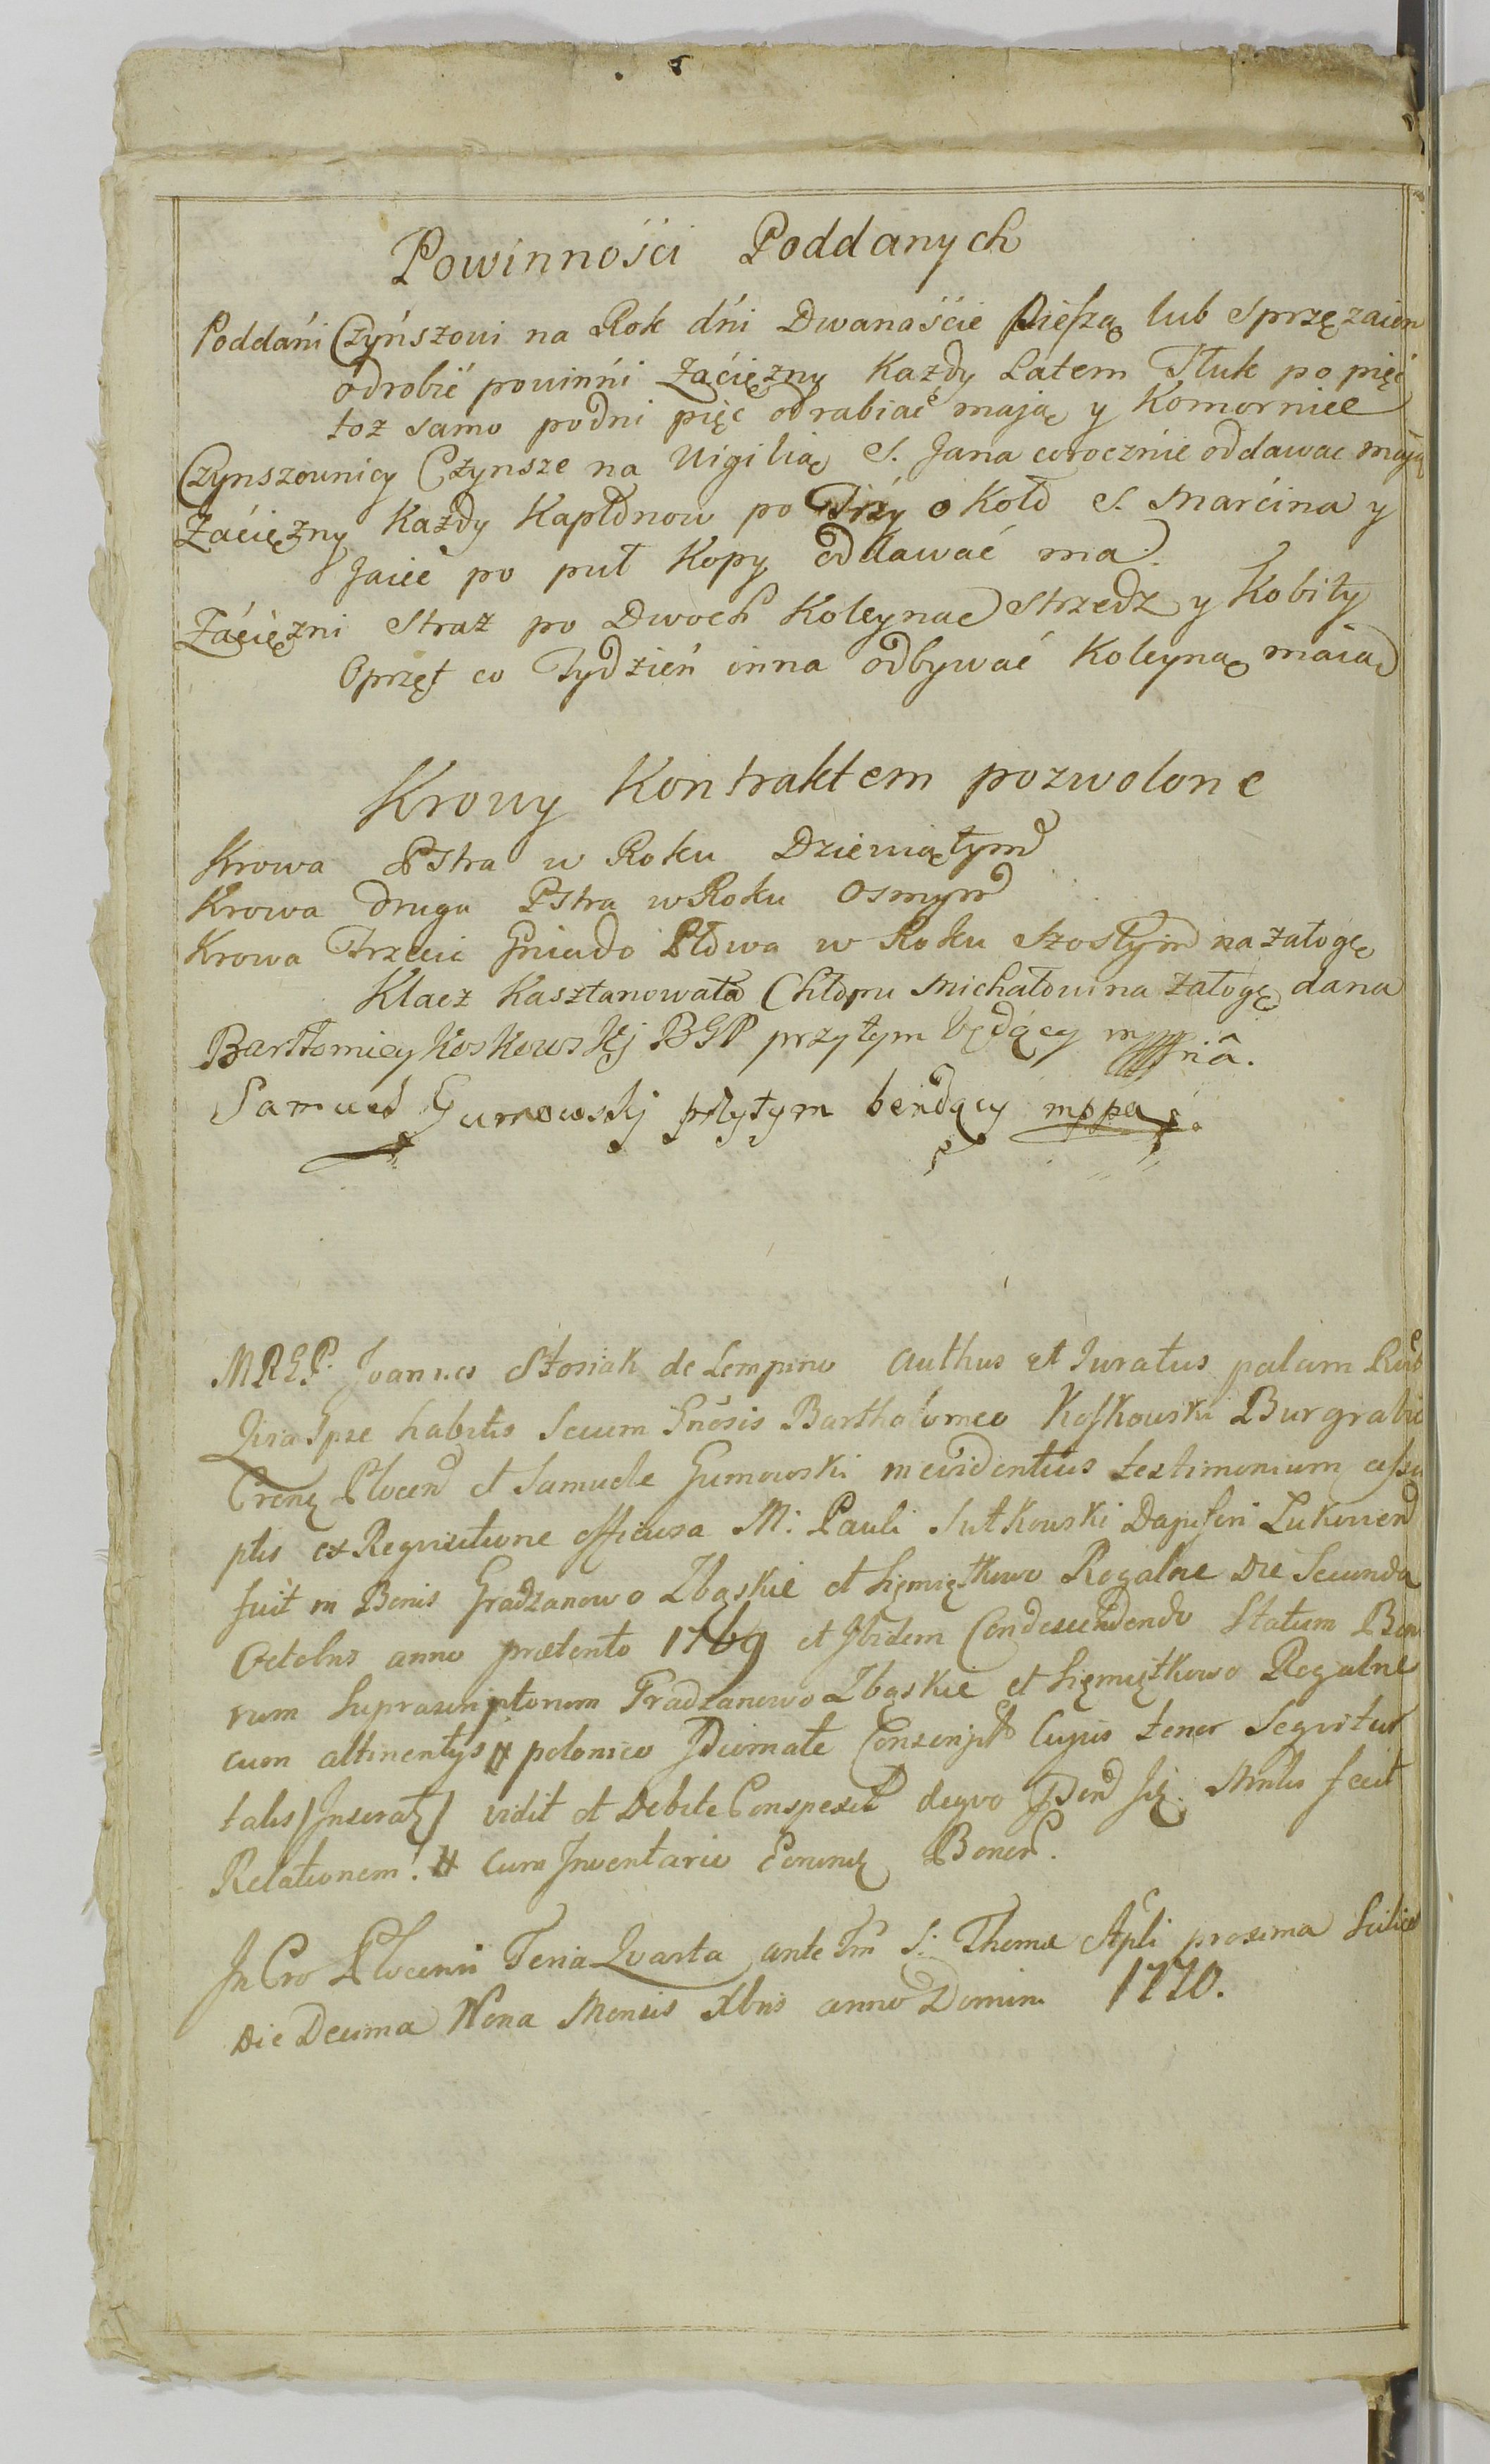 Powinnosci Poddanych
Poddani Czynszowi na Rok dni Dwanaście Pieszą lub Sprzęzaiem
odrobić powinni Zaciężny Kazdy Latem Tłuk po pięć
toz samo po dni pięc odrabiać mają y Komornice
Czynszownicy Czynsze na Uigilią S. Jana corocznie oddawac mają
Zaciężny Kazdy Kapłonow po Trzy o Koło S. Marcina y
Jaiec po puł Kopy oddawać ma.
Zaciężni Straz po Dwoch Koleyna Strzedz y Kobiły
Oprzęt co Tydzień inna odbywać Koleyną maia
Krowy Kontraktem pozwolone
Krowa Pstra w Roku Dziewiątym
Krowa druga Pstra w Roku Osmym
Krowa Trzecia Gniado Płowa w Roku Szostym na załogę
Klacz Kasztanowata Chłopu Michałowi na załogę dana
Bartłomiey Koskowskj BGP przytym będący
Samuel Gumowskj przytym bendący mppa
MRGP. Joannes Stosiak de Lempino authus et Juratus palam
habitis Secum Gnosis Bartholomeo Koskowski Burgrabio
Plocen et Samuele Gumowski in evidentius testimonium
ptis ex Requisitione officiosa M. Pauli Sutkowski Dapiferi Lukovien
fuit in Bonis Gradzanowo Zbąskie et Sięmiątkowo Rogalne Die Secunda
Octobris anno praetento 1769 et Ibidem Condescendendo Statum Bon
rum Suprascriptorum Gradzanowo Zbąskie et Sięmiątkowo Rogalne
cum attinentys # polonico Jdiomate Conscript Cujus tenor Sequitur
talis /Inserat/ vidit et Debite Conspexit deqvo fecit
Relationem. # cum Inventario Bonor.
In Cro Plocensi Feria Qvarta ante Fm S. Thomae Apli proxima Scilicet
Die Decima Nona Mensis Xbris anno Domini 1770.